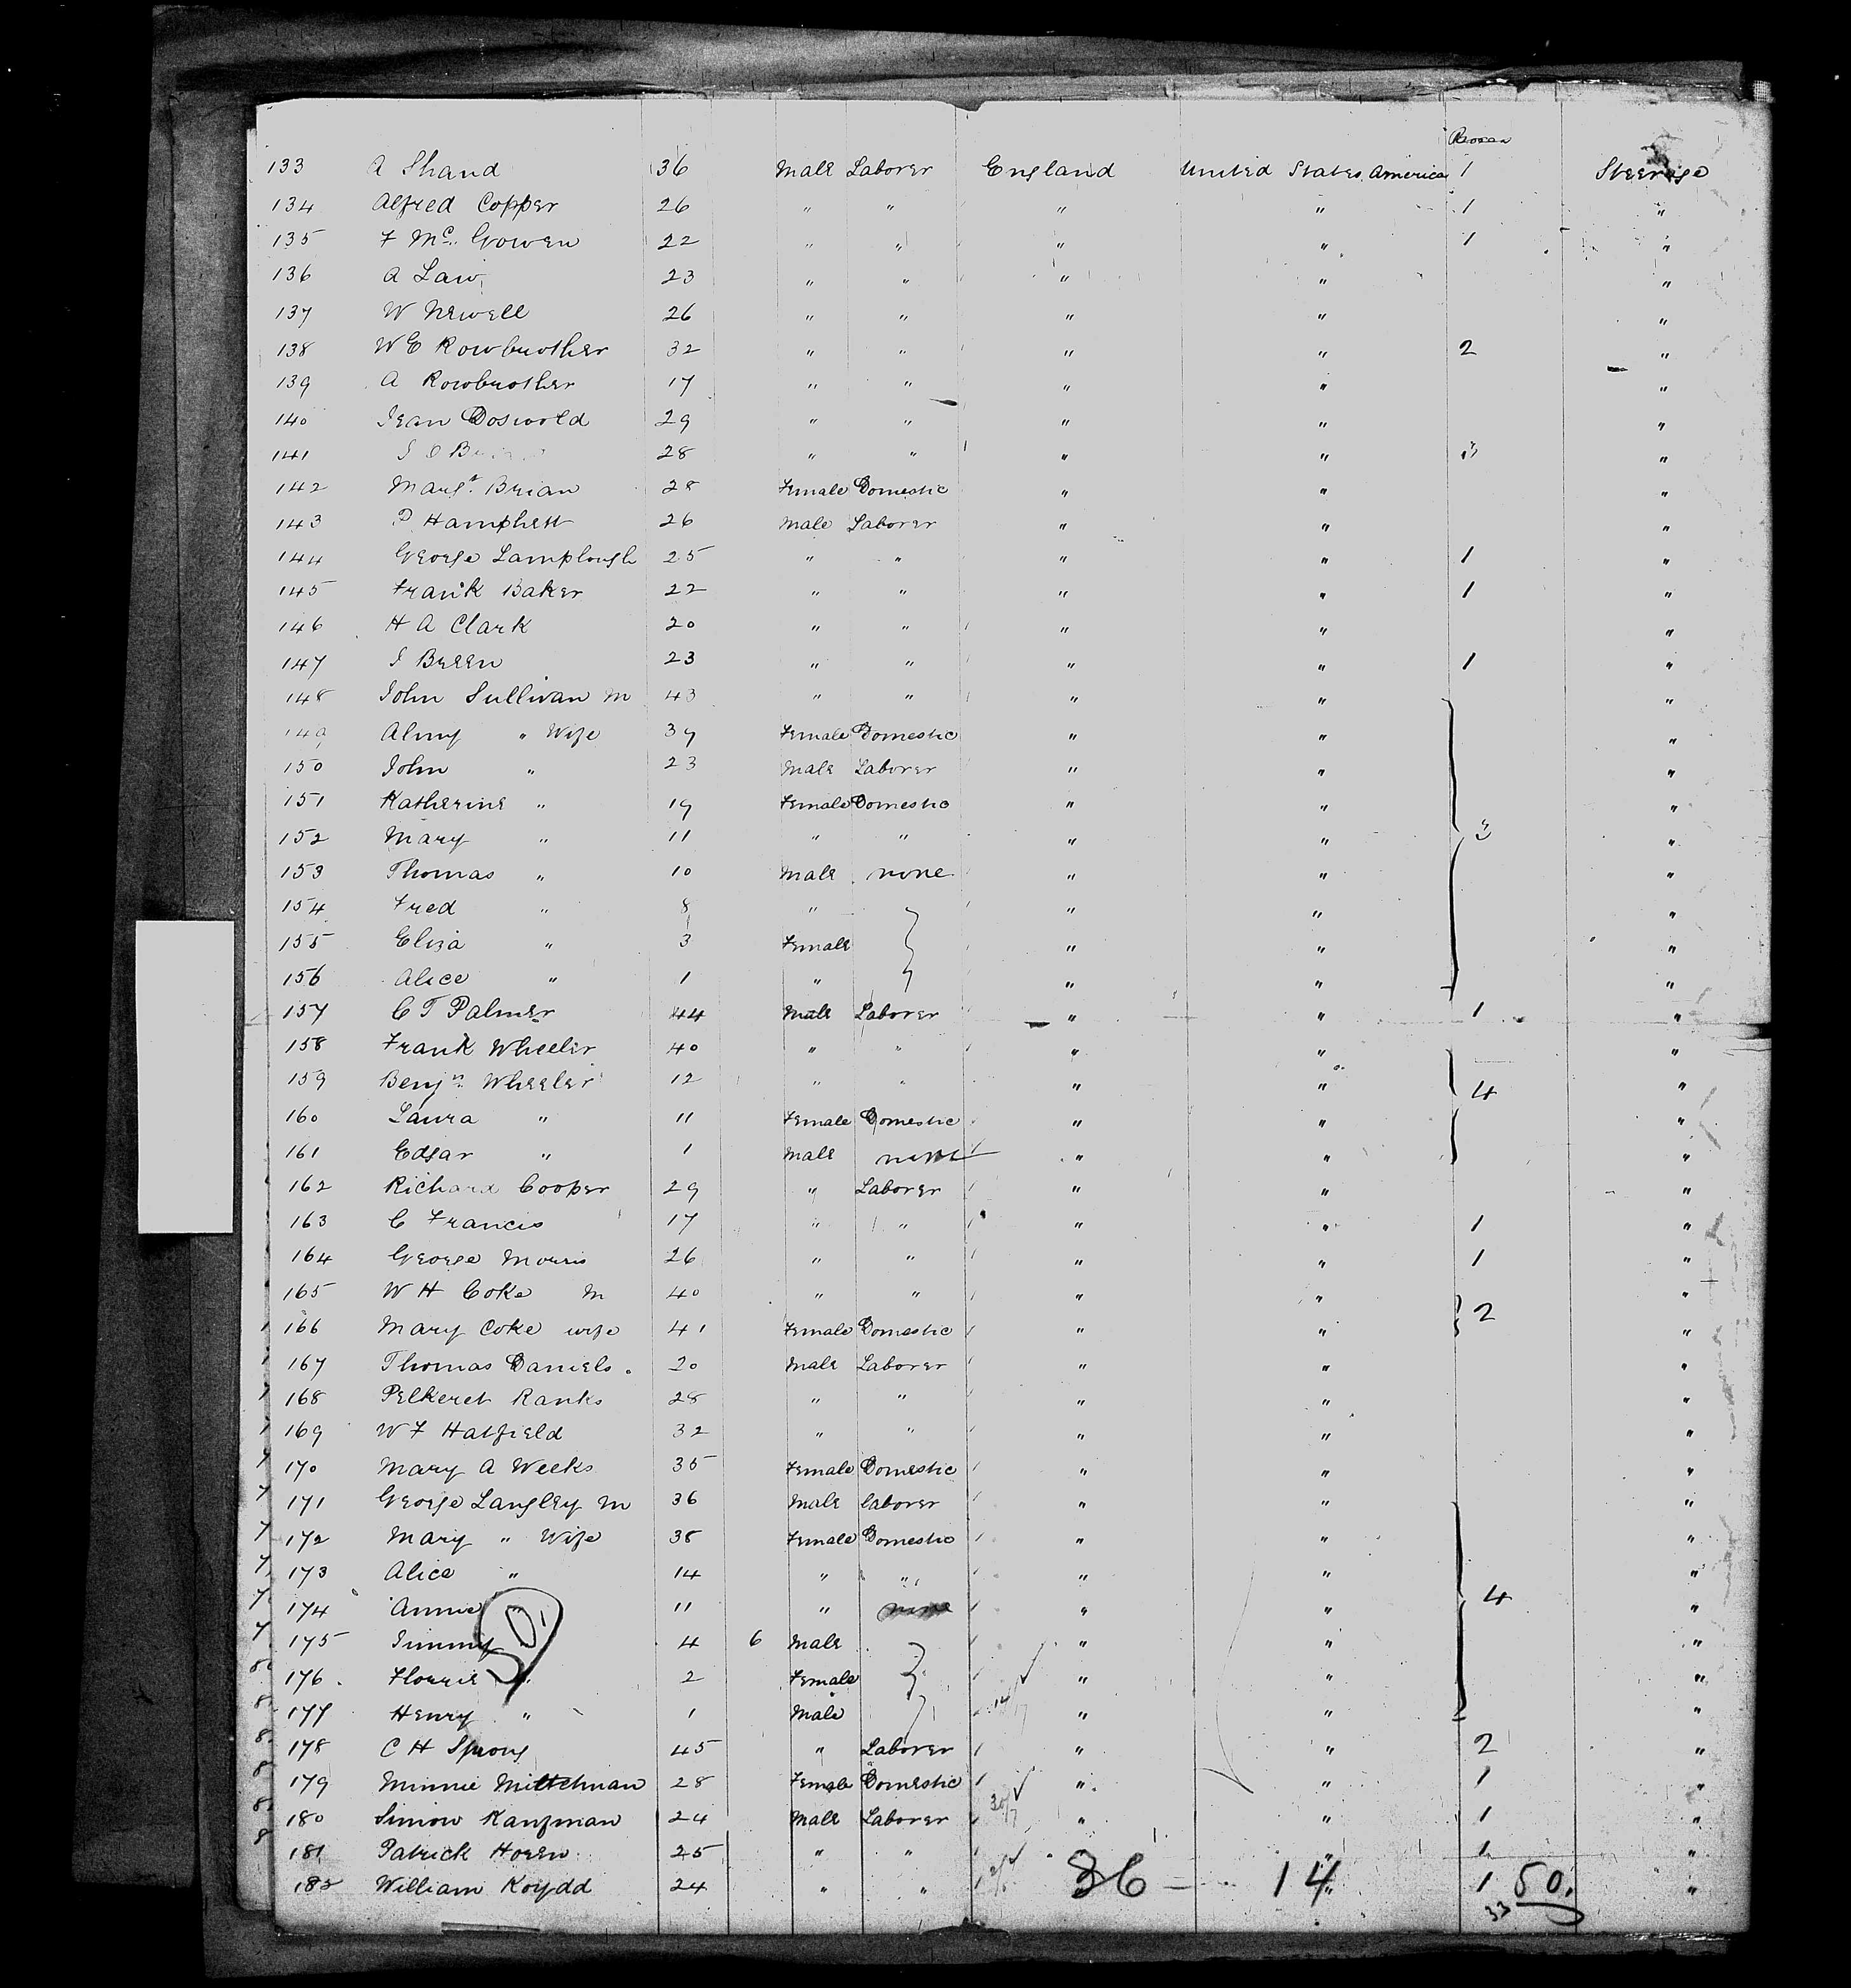 133 A Shand 36 Male Laborer England United States America 1 Steerage
134 Alfred Copper 26 " " " " 1 "
135 F Mc. Gowen 22 " " " " 1 "
136 A Law 23 " " " " "
137 W Newell 26 " " " " "
138 W E Rowbrother 32 " " " " 2 "
139 A Rowbrother 17 " " " " "
140 Jean Doswold 29 " " " " "
141 J O 28 " " " " 3 "
142 Margt. Brian 28 Female Domestic " " "
143 P Hamphett 26 Male Laborer " " "
144 George Lamplough 25 " " " " 1 "
145 Frank Baker 22 " " " " 1 "
146 H A Clark 20 " " " " "
147 J Breen 23 " " " " 1 "
148 John Sullivan M 43 " " " " "
149 Almy " Wife 39 Female Domestic " " "
150 John " 23 Male Laborer " " "
151 Katherine " 19 Female Domestic " " "
152 Mary " 11 " " " " 3 "
153 Thomas " 10 Male none " " "
154 Fred " 8 " " " "
155 Eliza " 3 Female " " "
156 Alice " 1 " " " "
157 C T Palmer 44 Male Laborer " " 1 "
158 Frank Wheeler 40 " " " " "
159 Benjn. Wheeler 12 " " " " 4 "
160 Laura " 11 Female Domestic " " "
161 Edgar " 1 Male none " " "
162 Richard Cooper 29 " Laborer " " "
163 C Francis 17 " " " " 1 "
164 George Morris 26 " " " " 1 "
165 W H Coke M 40 " " " " "
166 Mary Coke wife 41 Female Domestic " " 2 "
167 Thomas Daniels 20 Male Laborer " " "
168 Pelkeret Ranks 28 " " " " "
169 W F Hatfield 32 " " " " "
170 Mary A Weeks 35 Female Domestic " " "
171 George Langley M 36 Male laborer " " "
172 Mary " Wife 38 Female Domestic " " "
173 Alice " 14 " " " " "
174 Annie " 11 " none " " 4 "
175 Jimmy " 4 6 Male " " "
176 Florrie " 2 Female " " "
177 Henry " 1 Male " " "
178 C H Sprong 45 " Laborer " " 2 "
179 Minnie Mittelman 28 Female Domestic " " 1 "
180 Simow Kanfman 24 Male Laborer " " 1 "
181 Patrick Horen 25 " " " 1 "
182 William Koydd 24 " " 36 - 14 " 1 50. "
33